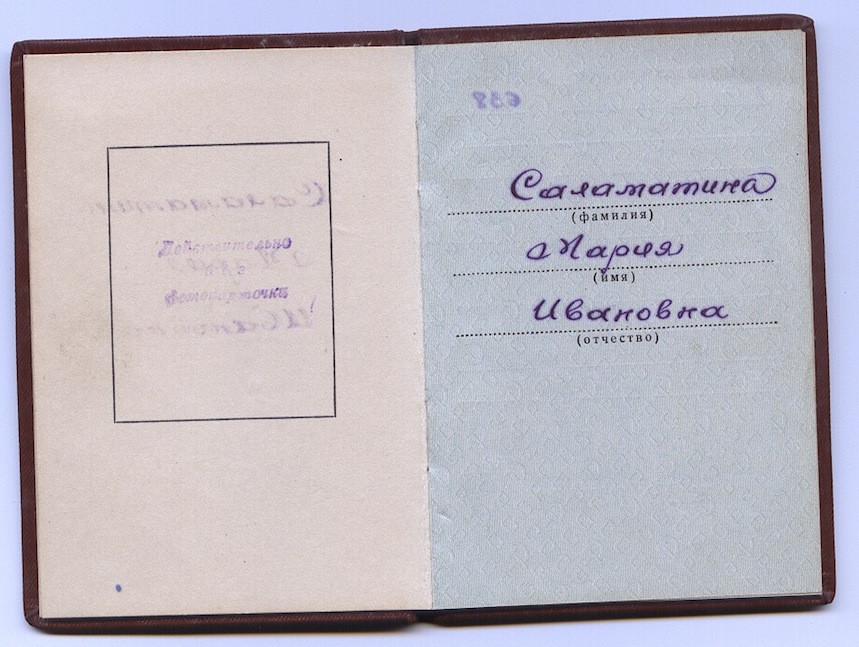 Действительно
без
фотокарточки
638
Саламатина
(фамилия)
Мария
(имя)
Ивановна
(отчество)